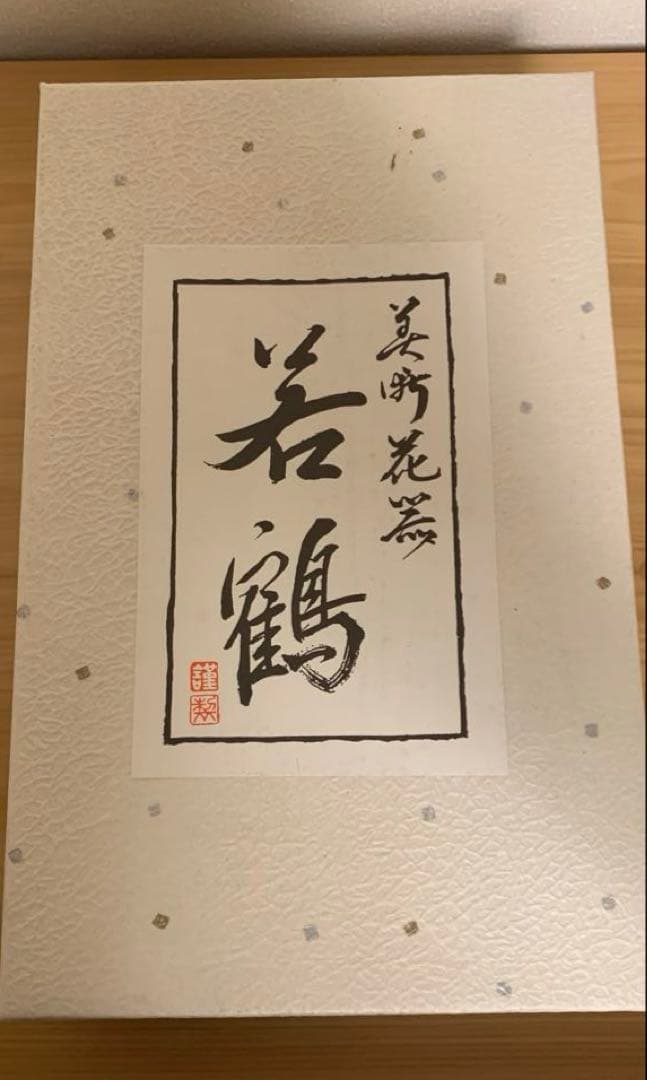 美術花器
若鶴
謹製